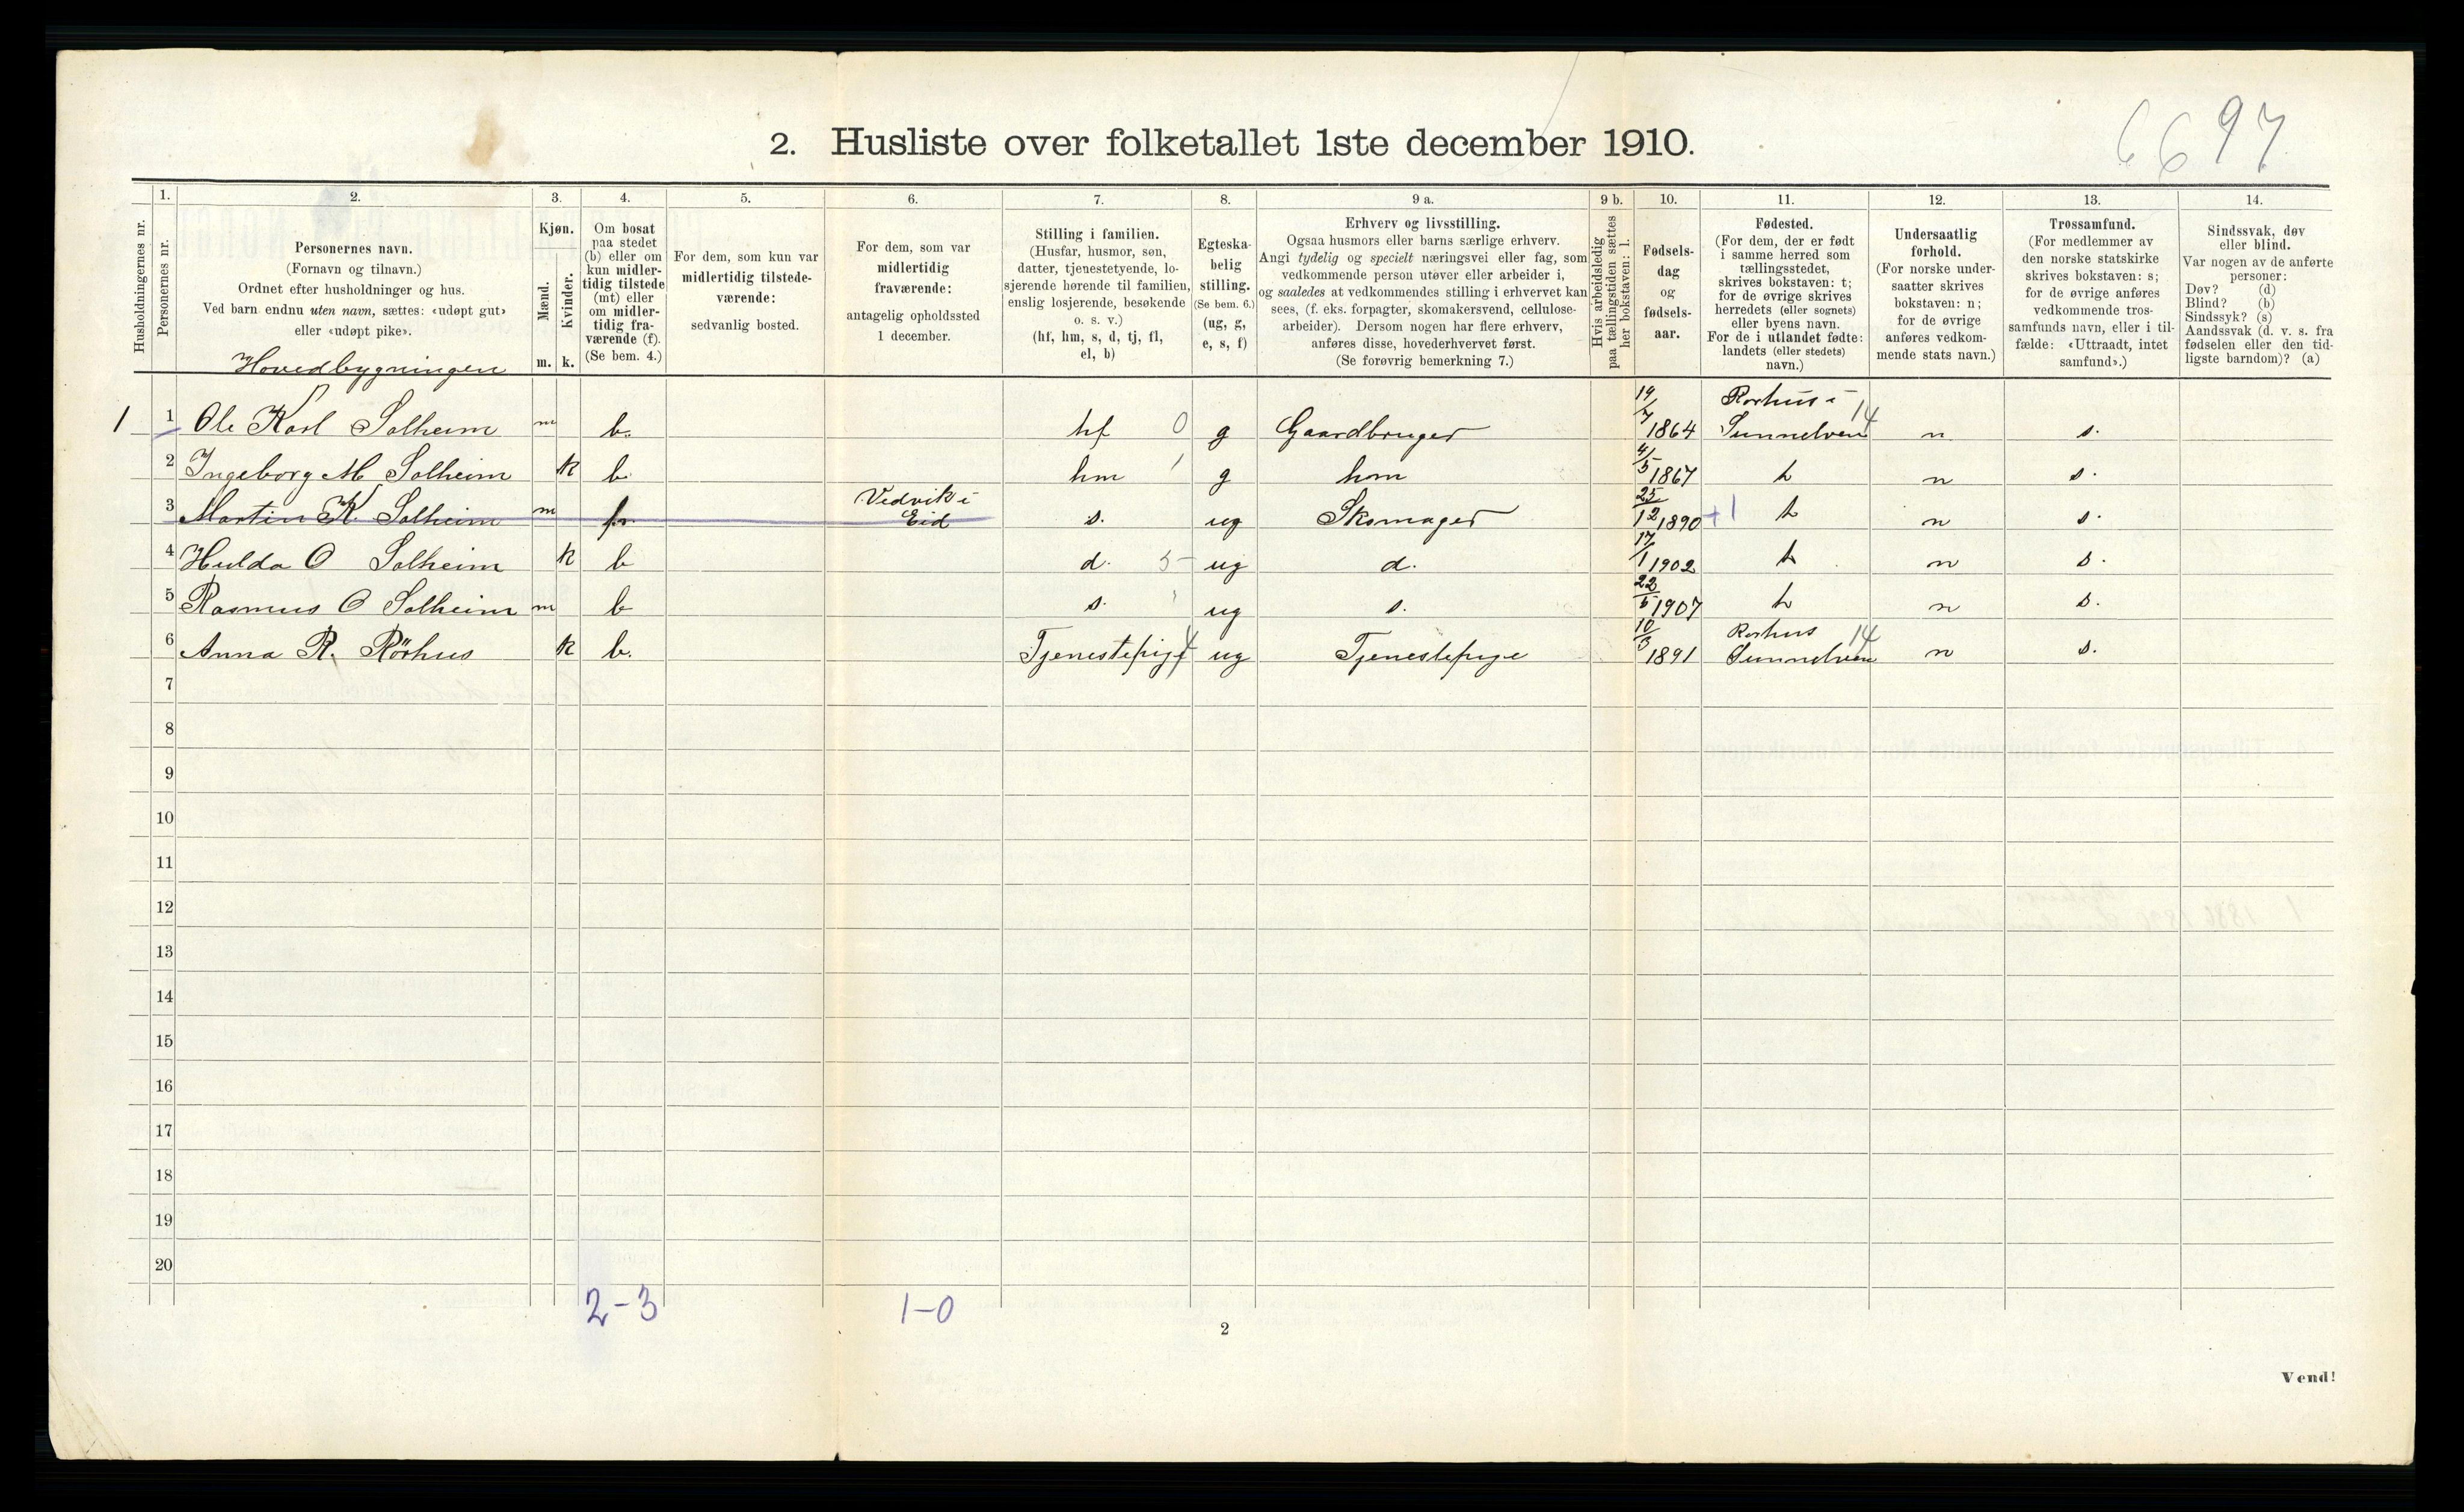 6697
2. Husliste over folketallet 1ste december 1910.
1. 2. 3. 4. 5. 6. 7. 8. 9 a. 9 b. 10. 11. 12. 13. 14.
Husholdningernes nr.
Personernes nr.
Personernes navn.
(Fornavn og tilnavn.)
Ordnet efter husholdninger og hus.
Ved barn endnu uten navn, sættes: «udøpt gut»
eller «udøpt pike».
Hovedbygningen
Kjøn.
Mænd.
Kvinder.
m. k.
Om bosat
paa stedet
(b) eller om
kun midler-
tidig tilstede
(mt) eller
om midler-
tidig fra-
værende (f).
(Se bem. 4.)
For dem, som kun var
midlertidig tilstede-
værende:
sedvanlig bosted.
For dem, som var
midlertidig
fraværende:
antagelig opholdssted
1 december.
Stilling i familien.
(Husfar, husmor, søn,
datter, tjenestetyende, lo-
sjerende hørende til familien,
enslig losjerende, besøkende
o. s. v.)
(hf, hm, s, d, tj, fl,
el, b)
Egteska-
belig
stilling.
(Se bem. 6.)
(ug, g,
e, s, f)
Erhverv og livsstilling.
Ogsaa husmors eller barns særlige erhverv.
Angi tydelig og specielt næringsvei eller fag, som
vedkommende person utøver eller arbeider i,
og saaledes at vedkommendes stilling i erhvervet kan
sees, (f. eks. forpagter, skomakersvend, cellulose-
arbeider). Dersom nogen har flere erhverv,
anføres disse, hovederhvervet først.
(Se forøvrig bemerkning 7.)
Hvis arbeidsledig
paa tællingstiden sættes
her bokstaven: l.
Fødsels-
dag
og
fødsels-
aar.
Fødested.
(For dem, der er født
i samme herred som
tællingsstedet,
skrives bokstaven: t;
for de øvrige skrives
herredets (eller sognets)
eller byens navn.
For de i utlandet fødte:
landets (eller stedets)
navn.)
Undersaatlig
forhold.
(For norske under-
saatter skrives
bokstaven: n;
for de øvrige
anføres vedkom-
mende stats navn.)
Trossamfund.
(For medlemmer av
den norske statskirke
skrives bokstaven: s;
for de øvrige anføres
vedkommende tros-
samfunds navn, eller i til-
fælde: «Uttraadt, intet
samfund».)
Sindssvak, døv
eller blind.
Var nogen av de anførte
personer:
Døv? (d)
Blind? (b)
Sindssyk? (s)
Aandssvak (d. v. s. fra
fødselen eller den tid-
ligste barndom)? (a)
1 1 Ole Karl Solheim m b. hf 0 g Gaardbruger 19/7 1864 Rørhus i Sunnelven 14 n s.
2 Ingeborg M Solheim k b. hm 1 g hom 4/5 1867 t n s.
3 Martin K. Solheim m Vedvik i Eid s. ug Skomager 25/12 1890 +1 t n s.
4 Hulda O Solheim k b d. 5 ug d. 17/1 1902 t n s.
5 Rasmus O Solheim m b s. ug s. 22/5 1907 t n s.
6 Anna R. Rörhus k b. Tjenestepige 4 ug Tjenestepige 10/3 1891 Rorhus Sunnelven 14 n s.
7
8
9
10
11
12
13
14
15
16
17
18
19
20
2-3 1-0
2
Vend!